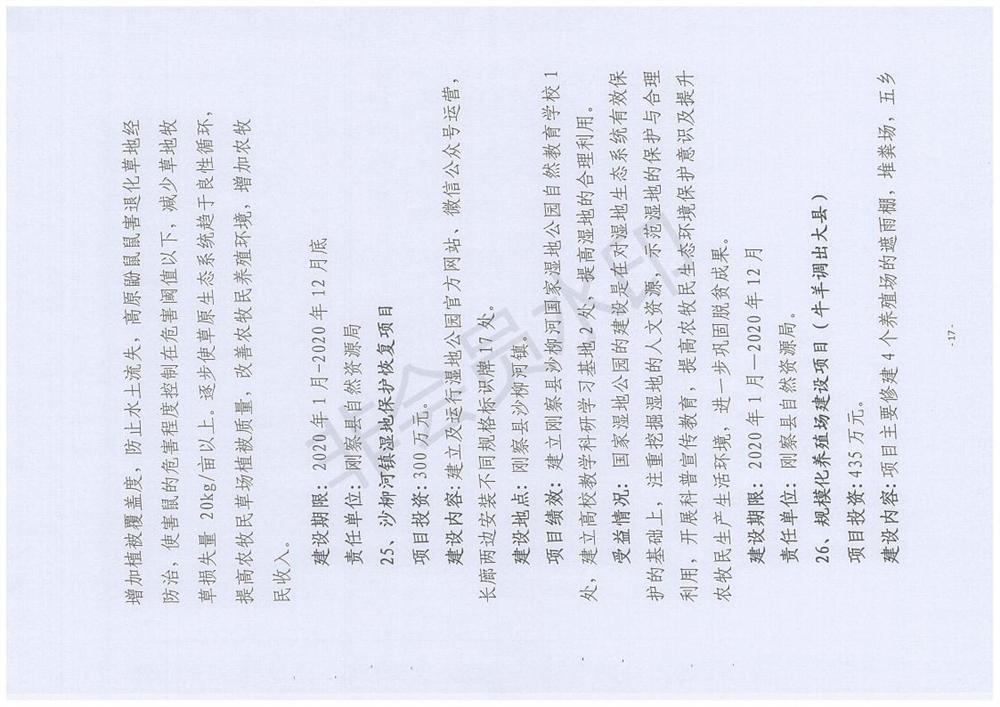 增加植被覆盖度，防止水土流失，高原鼢鼠鼠害退化草地经
防治，使害鼠的危害程度控制在危害阈值以下，减少草地牧
草损失量 20kg/亩以上。逐步使草原生态系统趋于良性循环，
提高农牧民草场植被质量，改善农牧民养殖环境，增加农牧
民收入。
建设期限：2020 年 1 月-2020 年 12 月底
责任单位：刚察县自然资源局
25、沙柳河镇湿地保护恢复项目
项目投资：300 万元。
建设内容：建立及运行湿地公园官方网站、微信公众号运营，
长廊两边安装不同规格标识牌 17 处。
建设地点：刚察县沙柳河镇。
项目绩效：建立刚察县沙柳河国家湿地公园自然教育学校 1
处，建立高校教学科研学习基地 2 处，提高湿地的合理利用。
受益情况：国家湿地公园的建设是在对湿地生态系统有效保
护的基础上，注重挖掘湿地的人文资源，示范湿地的保护与合理
利用，开展科普宣传教育，提高农牧民生态环境保护意识及提升
农牧民生产生活环境，进一步巩固脱贫成果。
建设期限：2020 年 1 月—2020 年 12 月
责任单位：刚察县自然资源局。
26、规模化养殖场建设项目（牛羊调出大县）
项目投资：435 万元。
建设内容：项目主要修建 4 个养殖场的遮雨棚，堆粪场，五乡
-17-
非会员水印